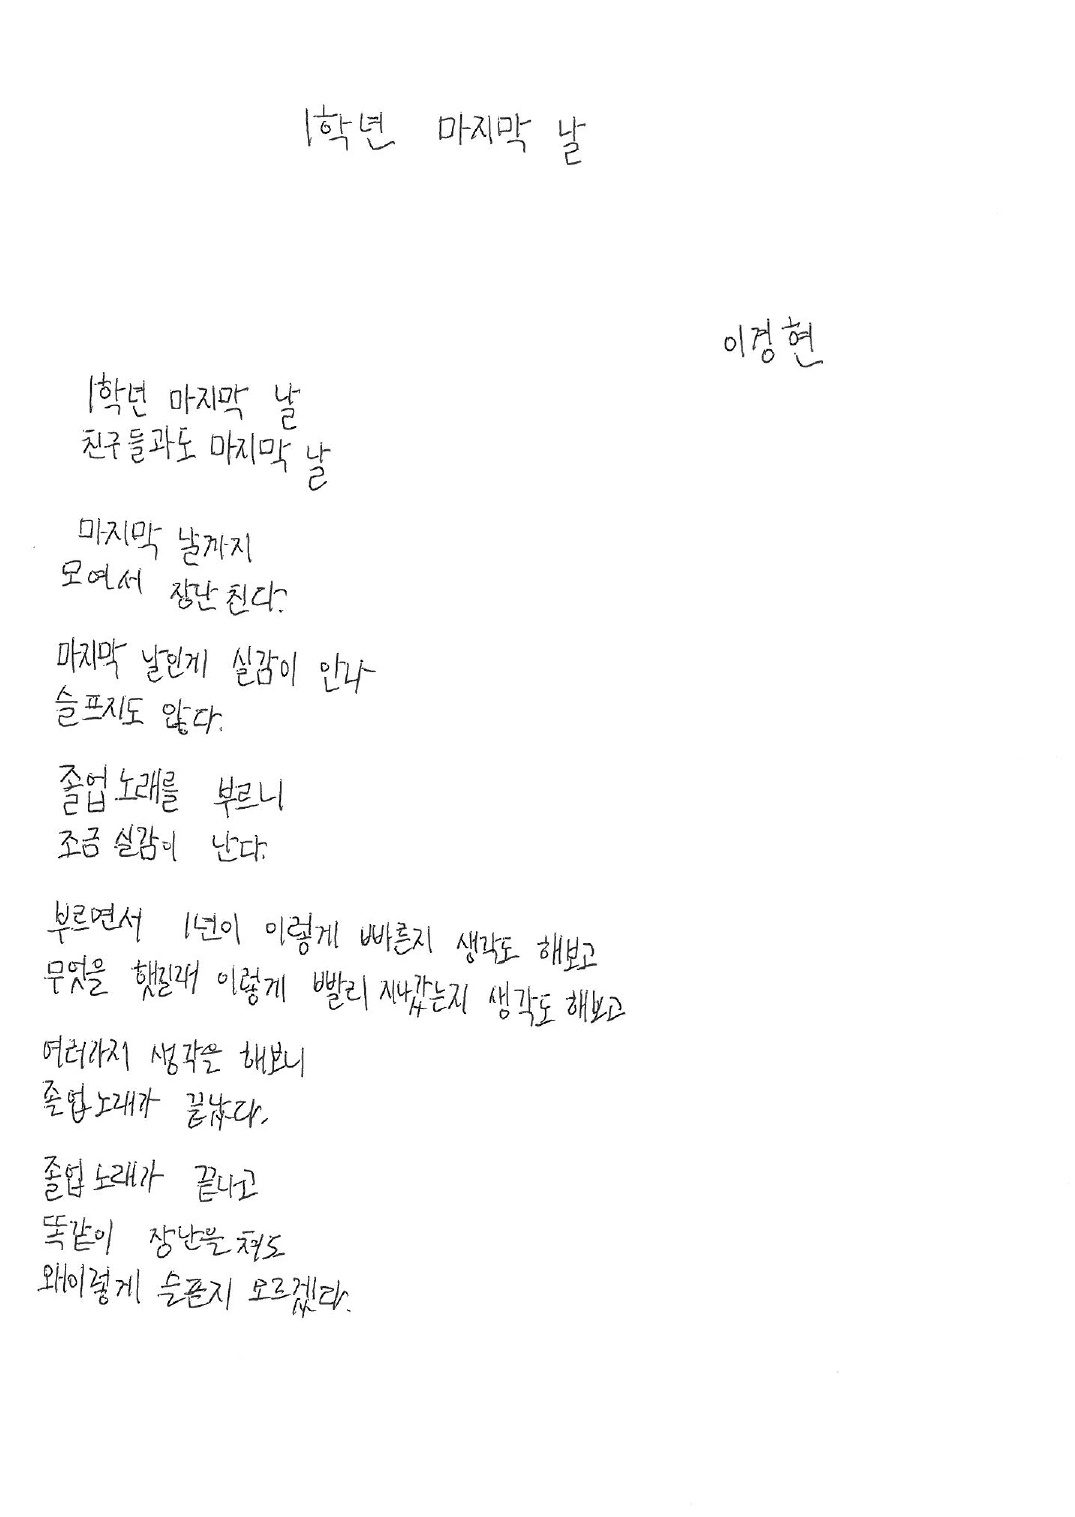 1학년 마지막 날
이경현
1학년 마지막 날
친구들과도 마지막 날
마지막 날까지
모여서 장난친다.
마지막 날인게 실감이 안나
슬프지도 않다.
졸업 노래를 부르니
조금 실감이 난다.
부르면서 1년이 이렇게 빠른지 생각도 해보고
무엇을 했길래 이렇게 빨리 지나갔는지 생각도 해보고
여러가지 생각을 해보니
졸업노래가 끝났다.
졸업 노래가 끝나고
똑같이 장난을 쳐도
왜이렇게 슬픈지 모르겠다.